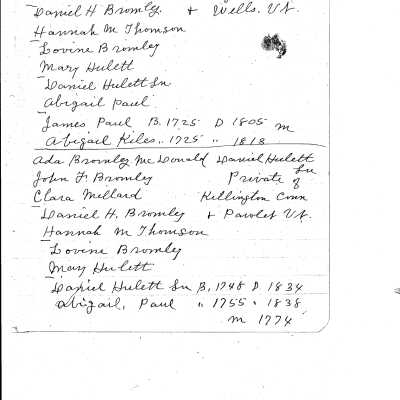 Daniel H Bromly. + Wells. Vt.
Hannah M Thomson
Lovine Bromley
Mary Hulett
Daniel Hulett Sn
Abigail Paul
James Paul B. 1725 D 1805 m
Abigail Kiles " 1725 " 1818
Ada Bromley McDonald Daniel Hulett Sn
John F. Bromley Private of
Clara Mellard Killington Conn
Daniel H. Bromly + Pawlet Vt.
Hannah M Thomson
Lovine Bromley
Mary Hulett
Daniel Hulett Sn B, 1748 D 1834
Abigail, Paul " 1755 " 1838
m 1774